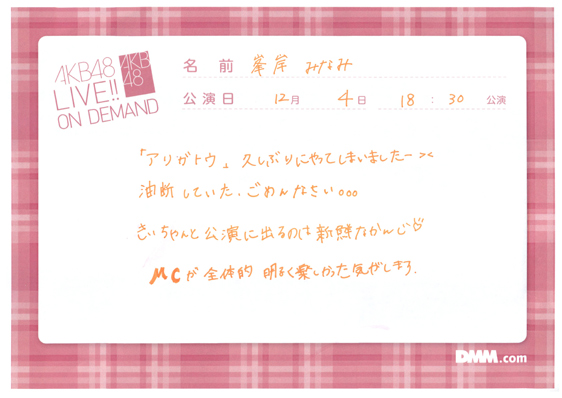 AKB48
LIVE!!
ON DEMAND
AKB
48
名 前 峯岸 みなみ
公演日 12月 4日 18 : 30 公演
「アリガトウ」久しぶりにやってしまいましたー ><
油断していた、ごめんなさい。。。
さいちゃんと公演に出るのは新鮮なかんじ♡
MCが全体的 明るく楽しかった気がしまる.
DMM.com